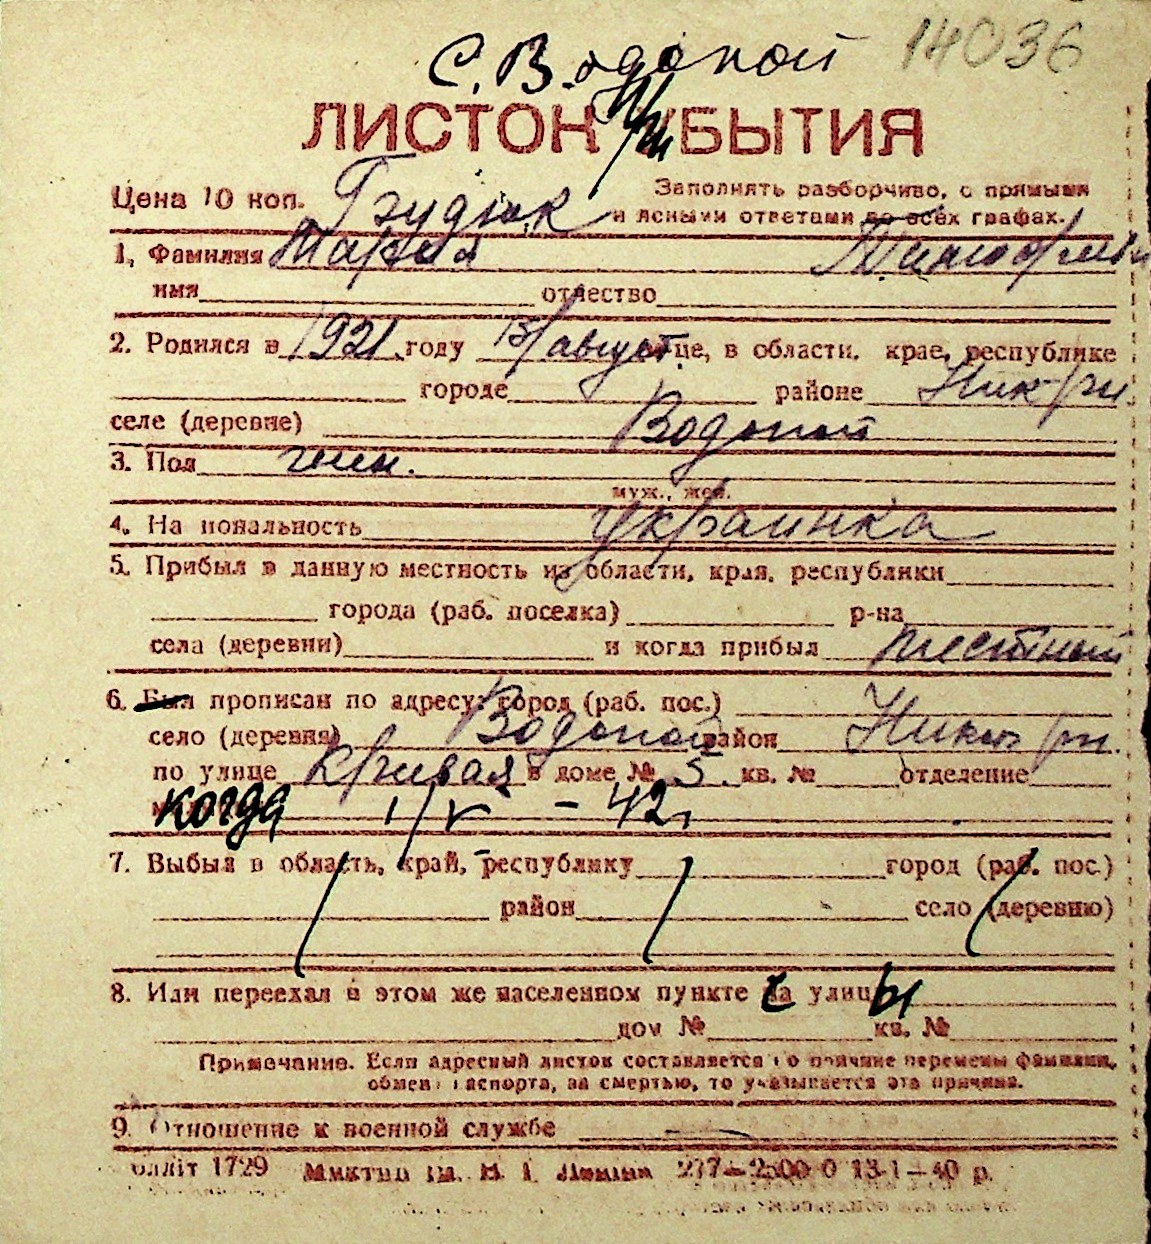 14036
с. Водопой
ЛИСТОК УБЫТИЯ
Цена 10 коп. Гзудзюк Заполнять разборчиво, с прямыми
и ясными ответами во всех графах.
1. Фамилия Мария Тимофеевн
имя отчество
2. Родился в 1921 году 15/август це, в области, крае, республике
городе районе Ник-р/н
селе (деревне) Водопой
3. Пол жен.
муж., жен.
4. Национальность украинка
5. Прибыл в данную местность из области, края, республики
города (раб. поселка) р-на
села (деревни) и когда прибыл местный
6. Был прописан по адресу: город (раб. пос.)
село (деревня) Водопой район Никол р/н.
по улице Кривая в доме № 5 кв. № отделение
когда 1/V - 42.
7. Выбыл в область, край, республику город (раб. пос.)
район село (деревню)
8. Или переехал в этом же населенном пункте с улицы
дом № кв. №
Примечание. Если адресный листок составляется по причине перемены фамилии,
обмена паспорта, за смертью, то указывается эта причина.
9. Отношение к военной службе —
Облліт 1729 277—2500 0 13-1—40 р.